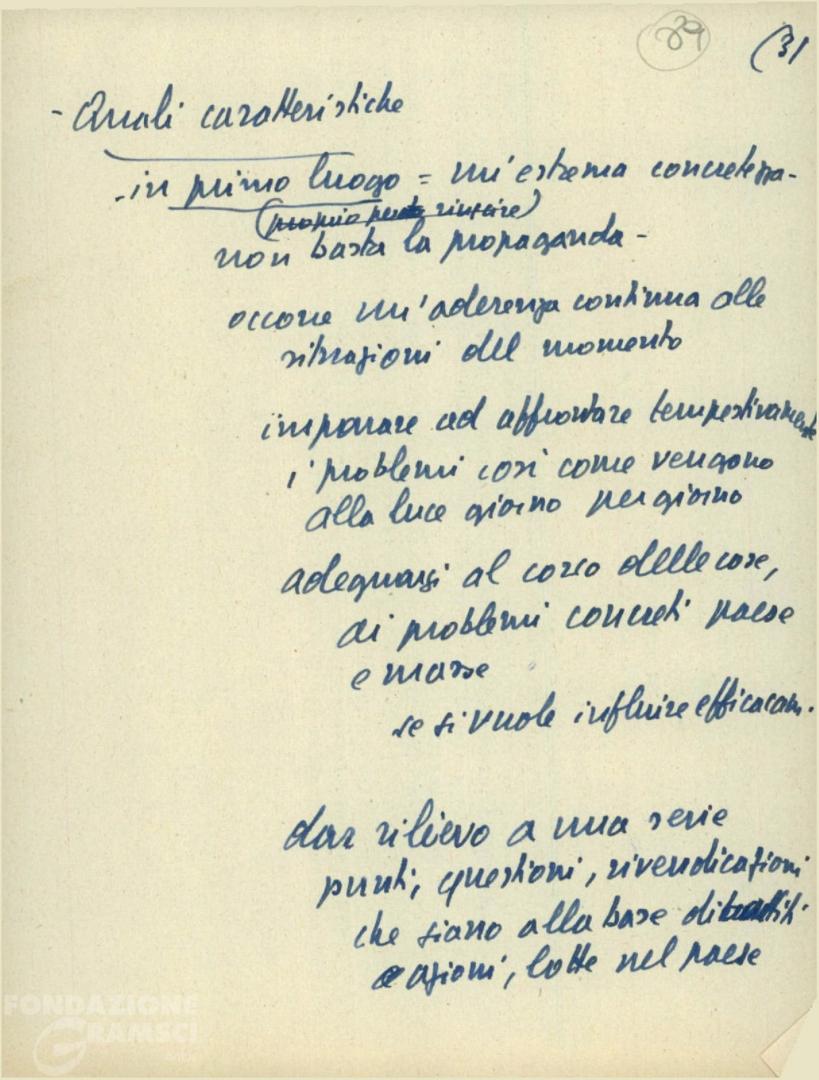 39 (3)
- Quali caratteristiche
- in primo luogo = un'estrema concretezza -
(proprio per riuscire)
non basta la propaganda -
occorre un'aderenza continua alle
situazioni del momento
imparare ad affrontare tempestivamente
i problemi così come vengono
alla luce giorno per giorno
adeguarsi al corso delle cose,
ai problemi concreti paese
e masse
se si vuole influire efficacam.
dar rilievo a una serie
punti, questioni, rivendicazioni
che siano alla base dibattiti
e azioni, lotte nel paese
FONDAZIONE
GRAMSCI